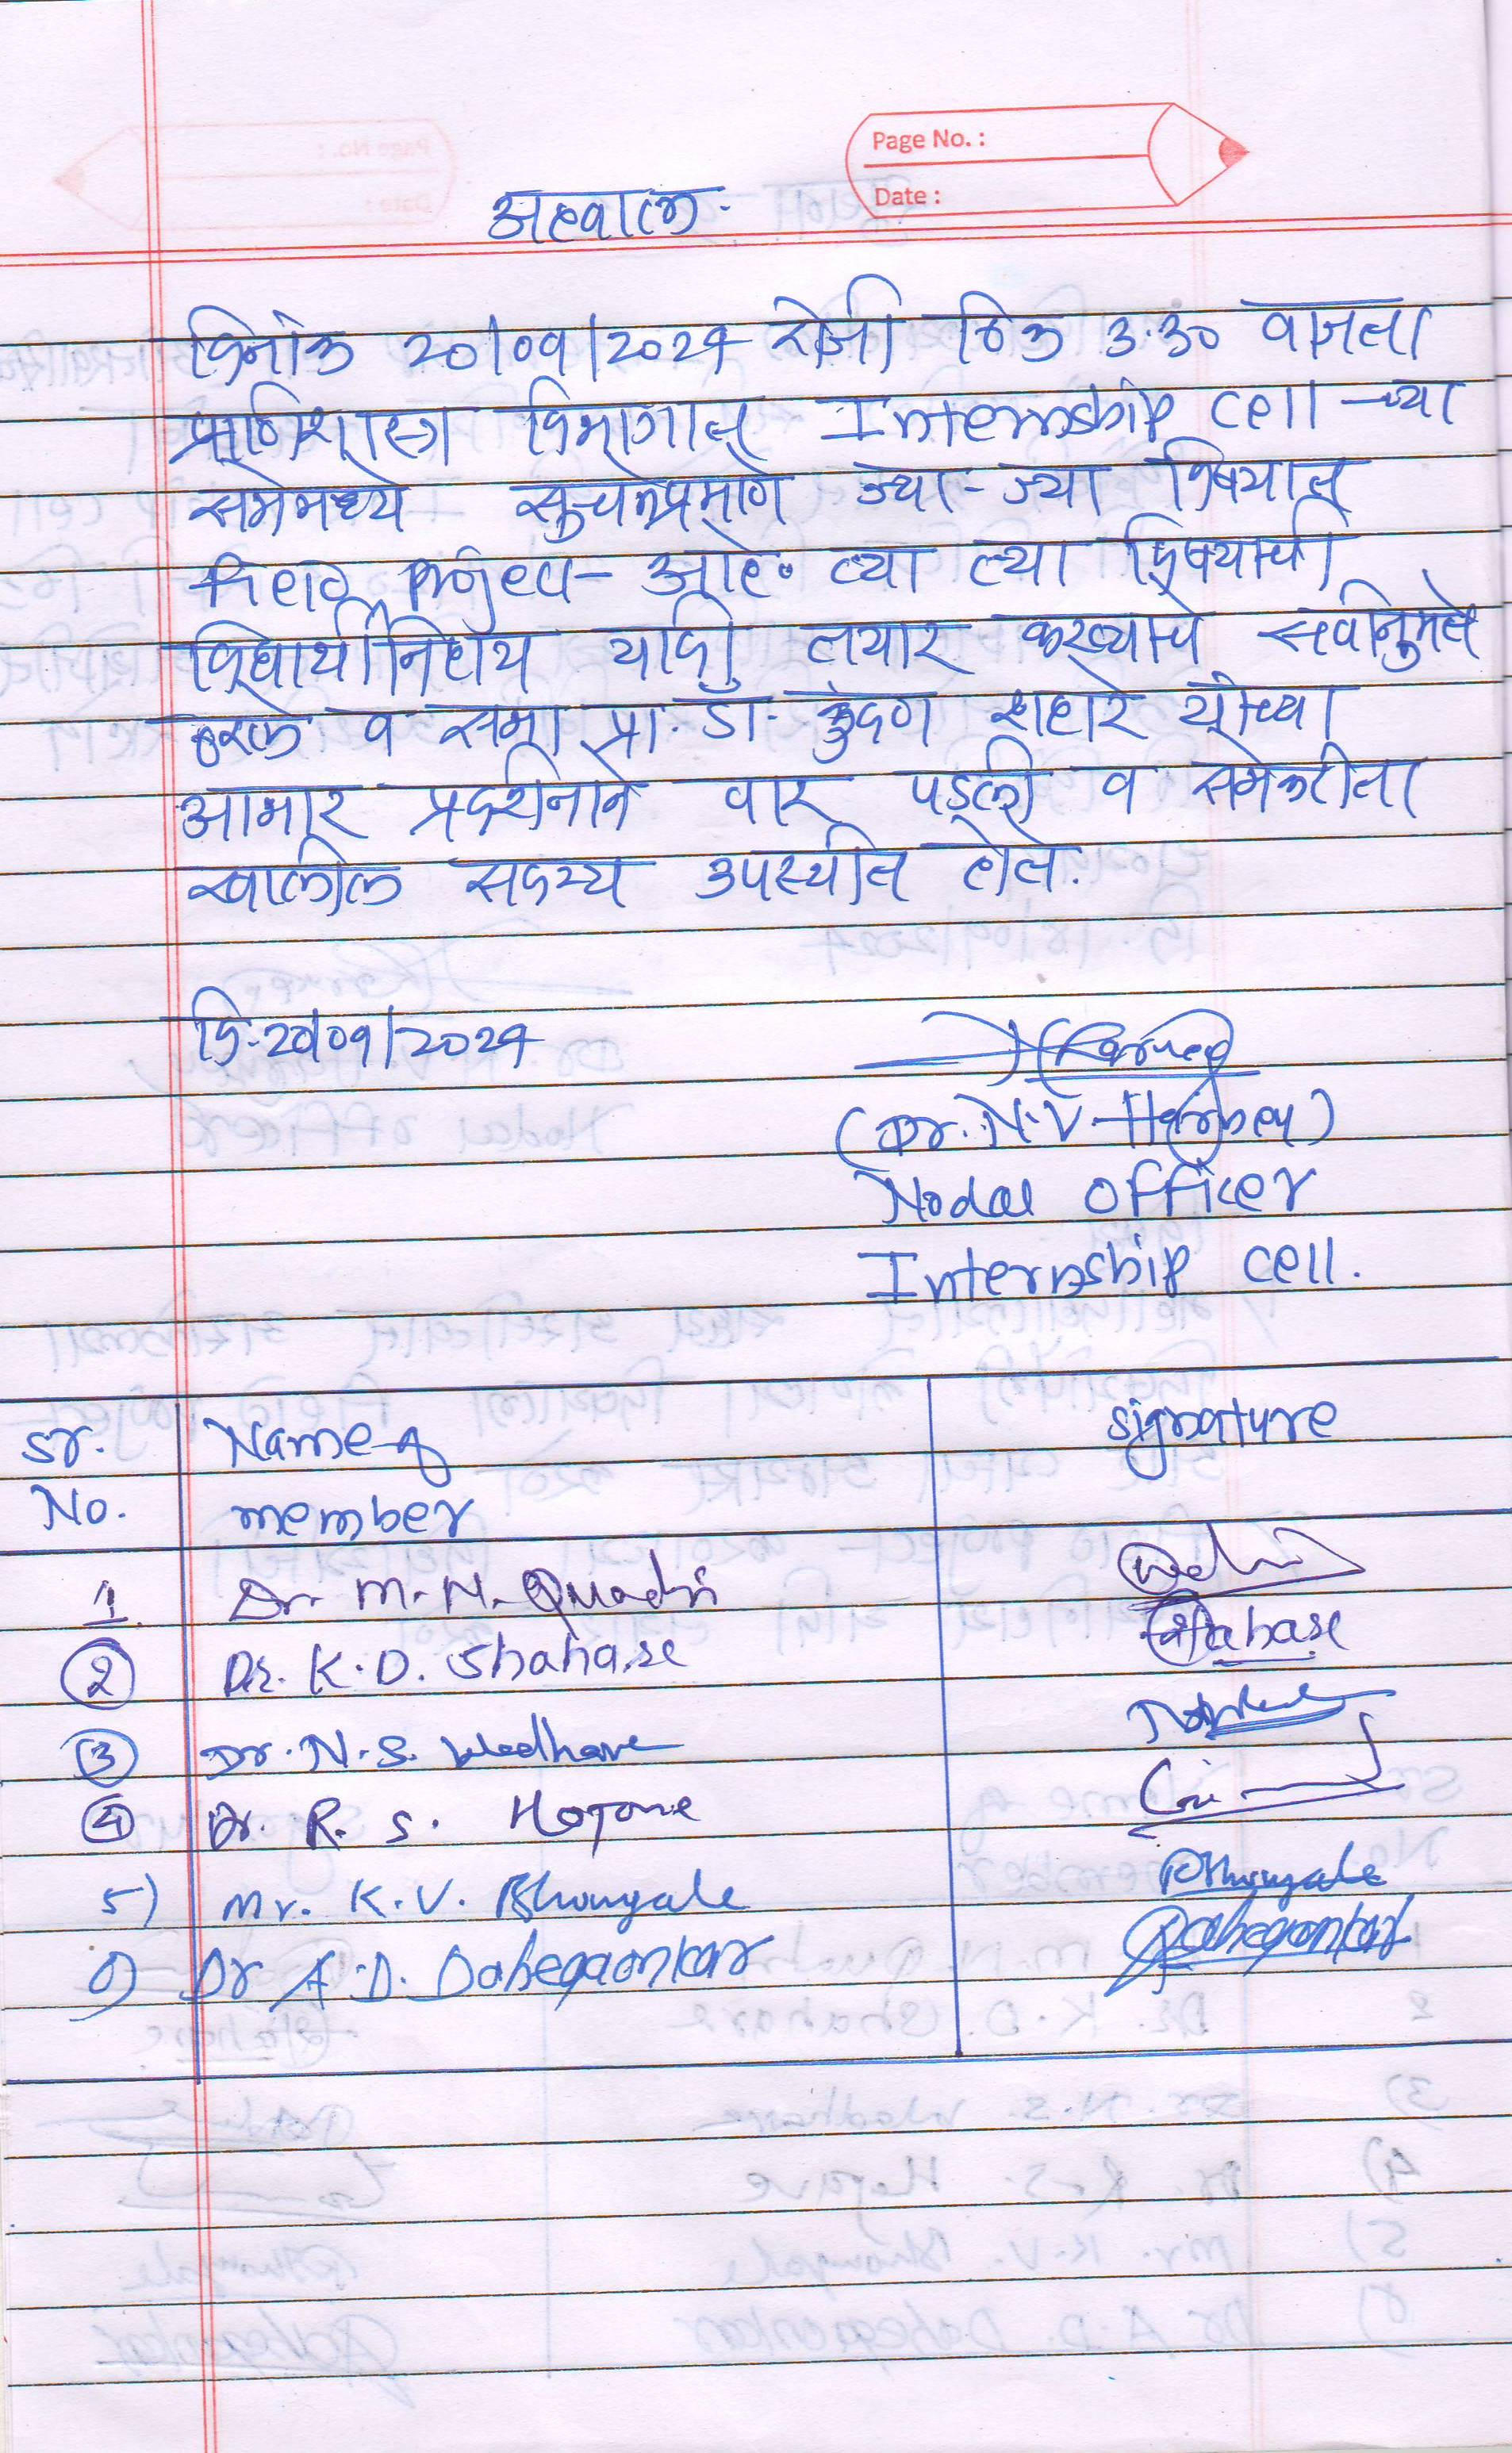 Page No. :
Date :
अहवाल.
दिनांक 20/09/2024 रोजी ठिक 3.30 वाजता
प्राणिशास्त्र विभागात Internship cell च्या
सभेमध्ये सुचनेप्रमाणे ज्या-ज्या विषयात
फिल्ड Project आहे. त्या त्या विषयाची
विद्यार्थीनिहाय यादी तयार करण्याचे सर्वानुमते
ठरले व सभा प्रा. डॉ. कुंदन शहारे यांच्या
आभार प्रदर्शनाने पार पडली व सभेकरीता
खालील सदस्य उपस्थीत होते.
दि. 20/09/2024
(Dr. N.V. Harney)
Nodal officer
Internship cell.
Sr. Name of signature
No. member
1. Dr. M.N. Quadri
2 Dr. K.D. Shahare Shahare
3 Dr. N.S. Wadhave
4 Dr. R. S.
5) Mr. K.V. Bhongale Bhongale
6) Dr A.D. Dahegaonkar Dahegaonkar